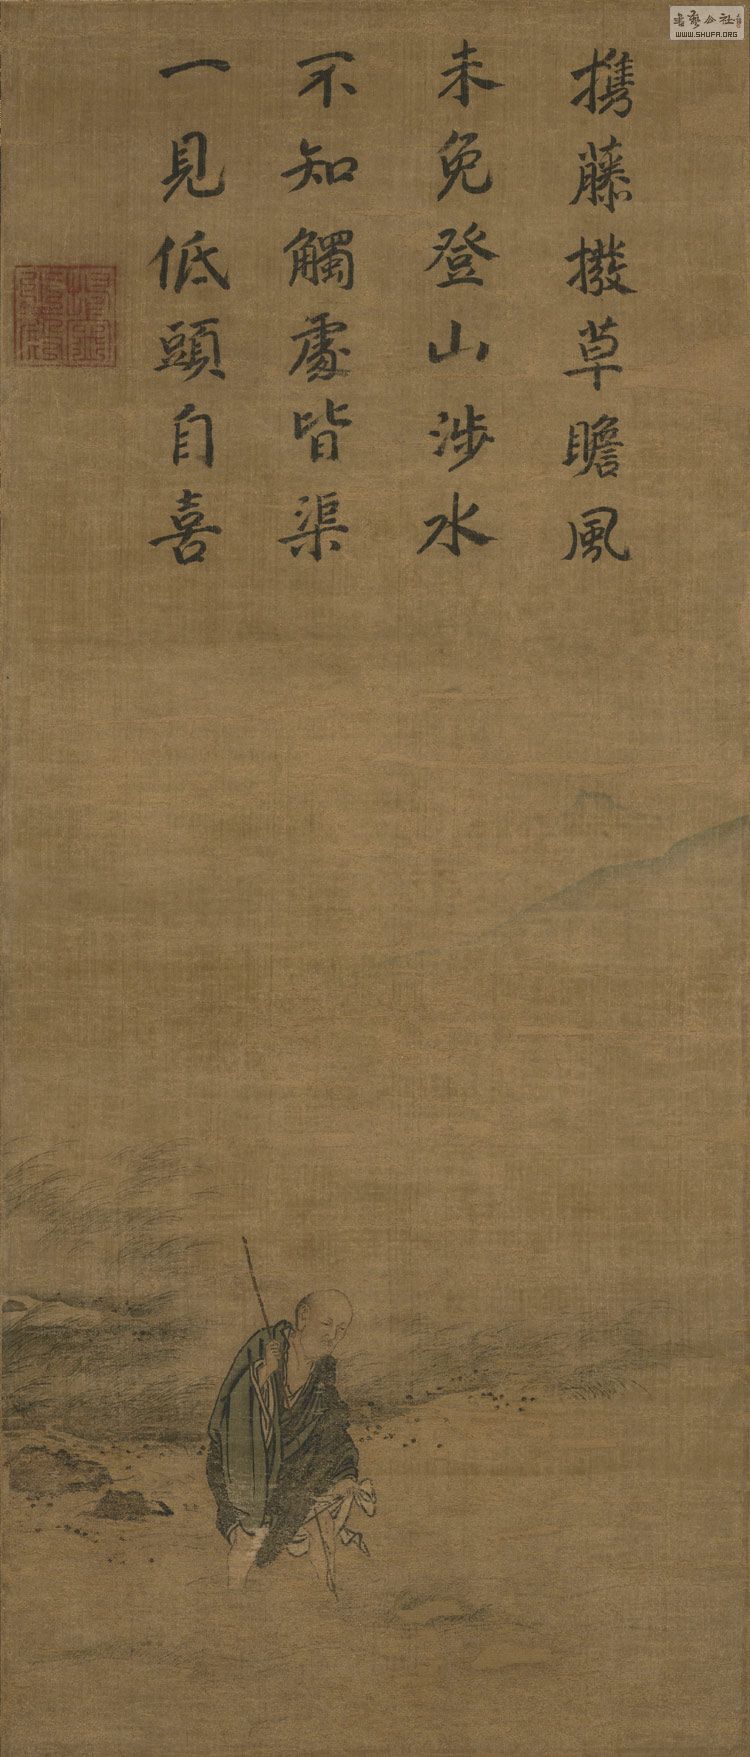 携藤撥草瞻風
未免登山涉水
不知觸處皆渠
一見低頭自喜
WWW.SHUFA.ORG